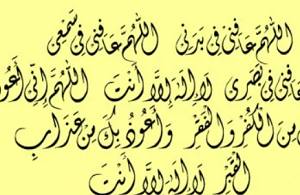 اللهُمَّ عَافِنِى فِى بَدَنِى اللهُمَّ عَافِنِى فِى سَمْعِى
اللهُمَّ عَافِنِى فِى بَصَرِى لَا إِلٰهَ إِلَّا أَنْتَ اللهُمَّ إِنِّى أَعُوذُ
مِنَ الْكُفْرِ وَالْفَقْرِ وَأَعُوذُ بِكَ مِنْ عَذَابِ
الْقَبْرِ لَا إِلٰهَ إِلَّا أَنْتَ